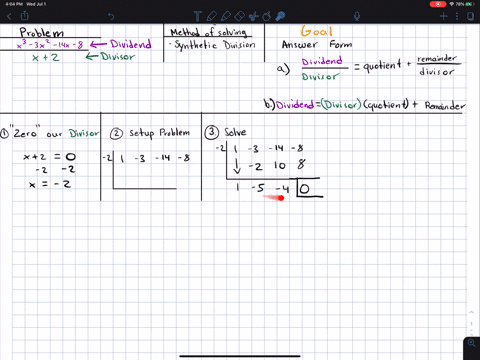 4:04 PM Wed Jul 1
76%
Problem
x³-3x²-14x-8 ← Dividend
x+2 ← Divisor
Method of solving
- Synthetic Division
Goal
Answer Form
a) Dividend/Divisor = quotient + remainder/divisor
b.) Dividend=(Divisor)(quotient) + Remainder
① "Zero" our Divisor
x+2 = 0
-2 -2
x = -2
② Setup Problem
-2 | 1 -3 -14 -8
③ Solve
-2 | 1 -3 -14 -8
↓ -2 10 8
1 -5 -4 0